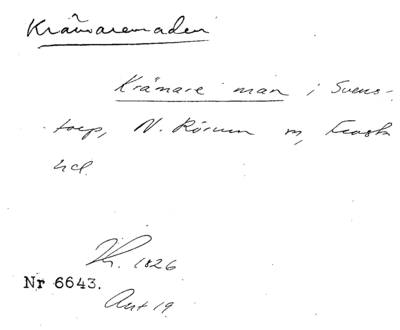 Krämaremaden
Krämare man i Svens-
torp, N. Rörum sn, Frosta
hd.
1826
Nr 6643.
Avt 19